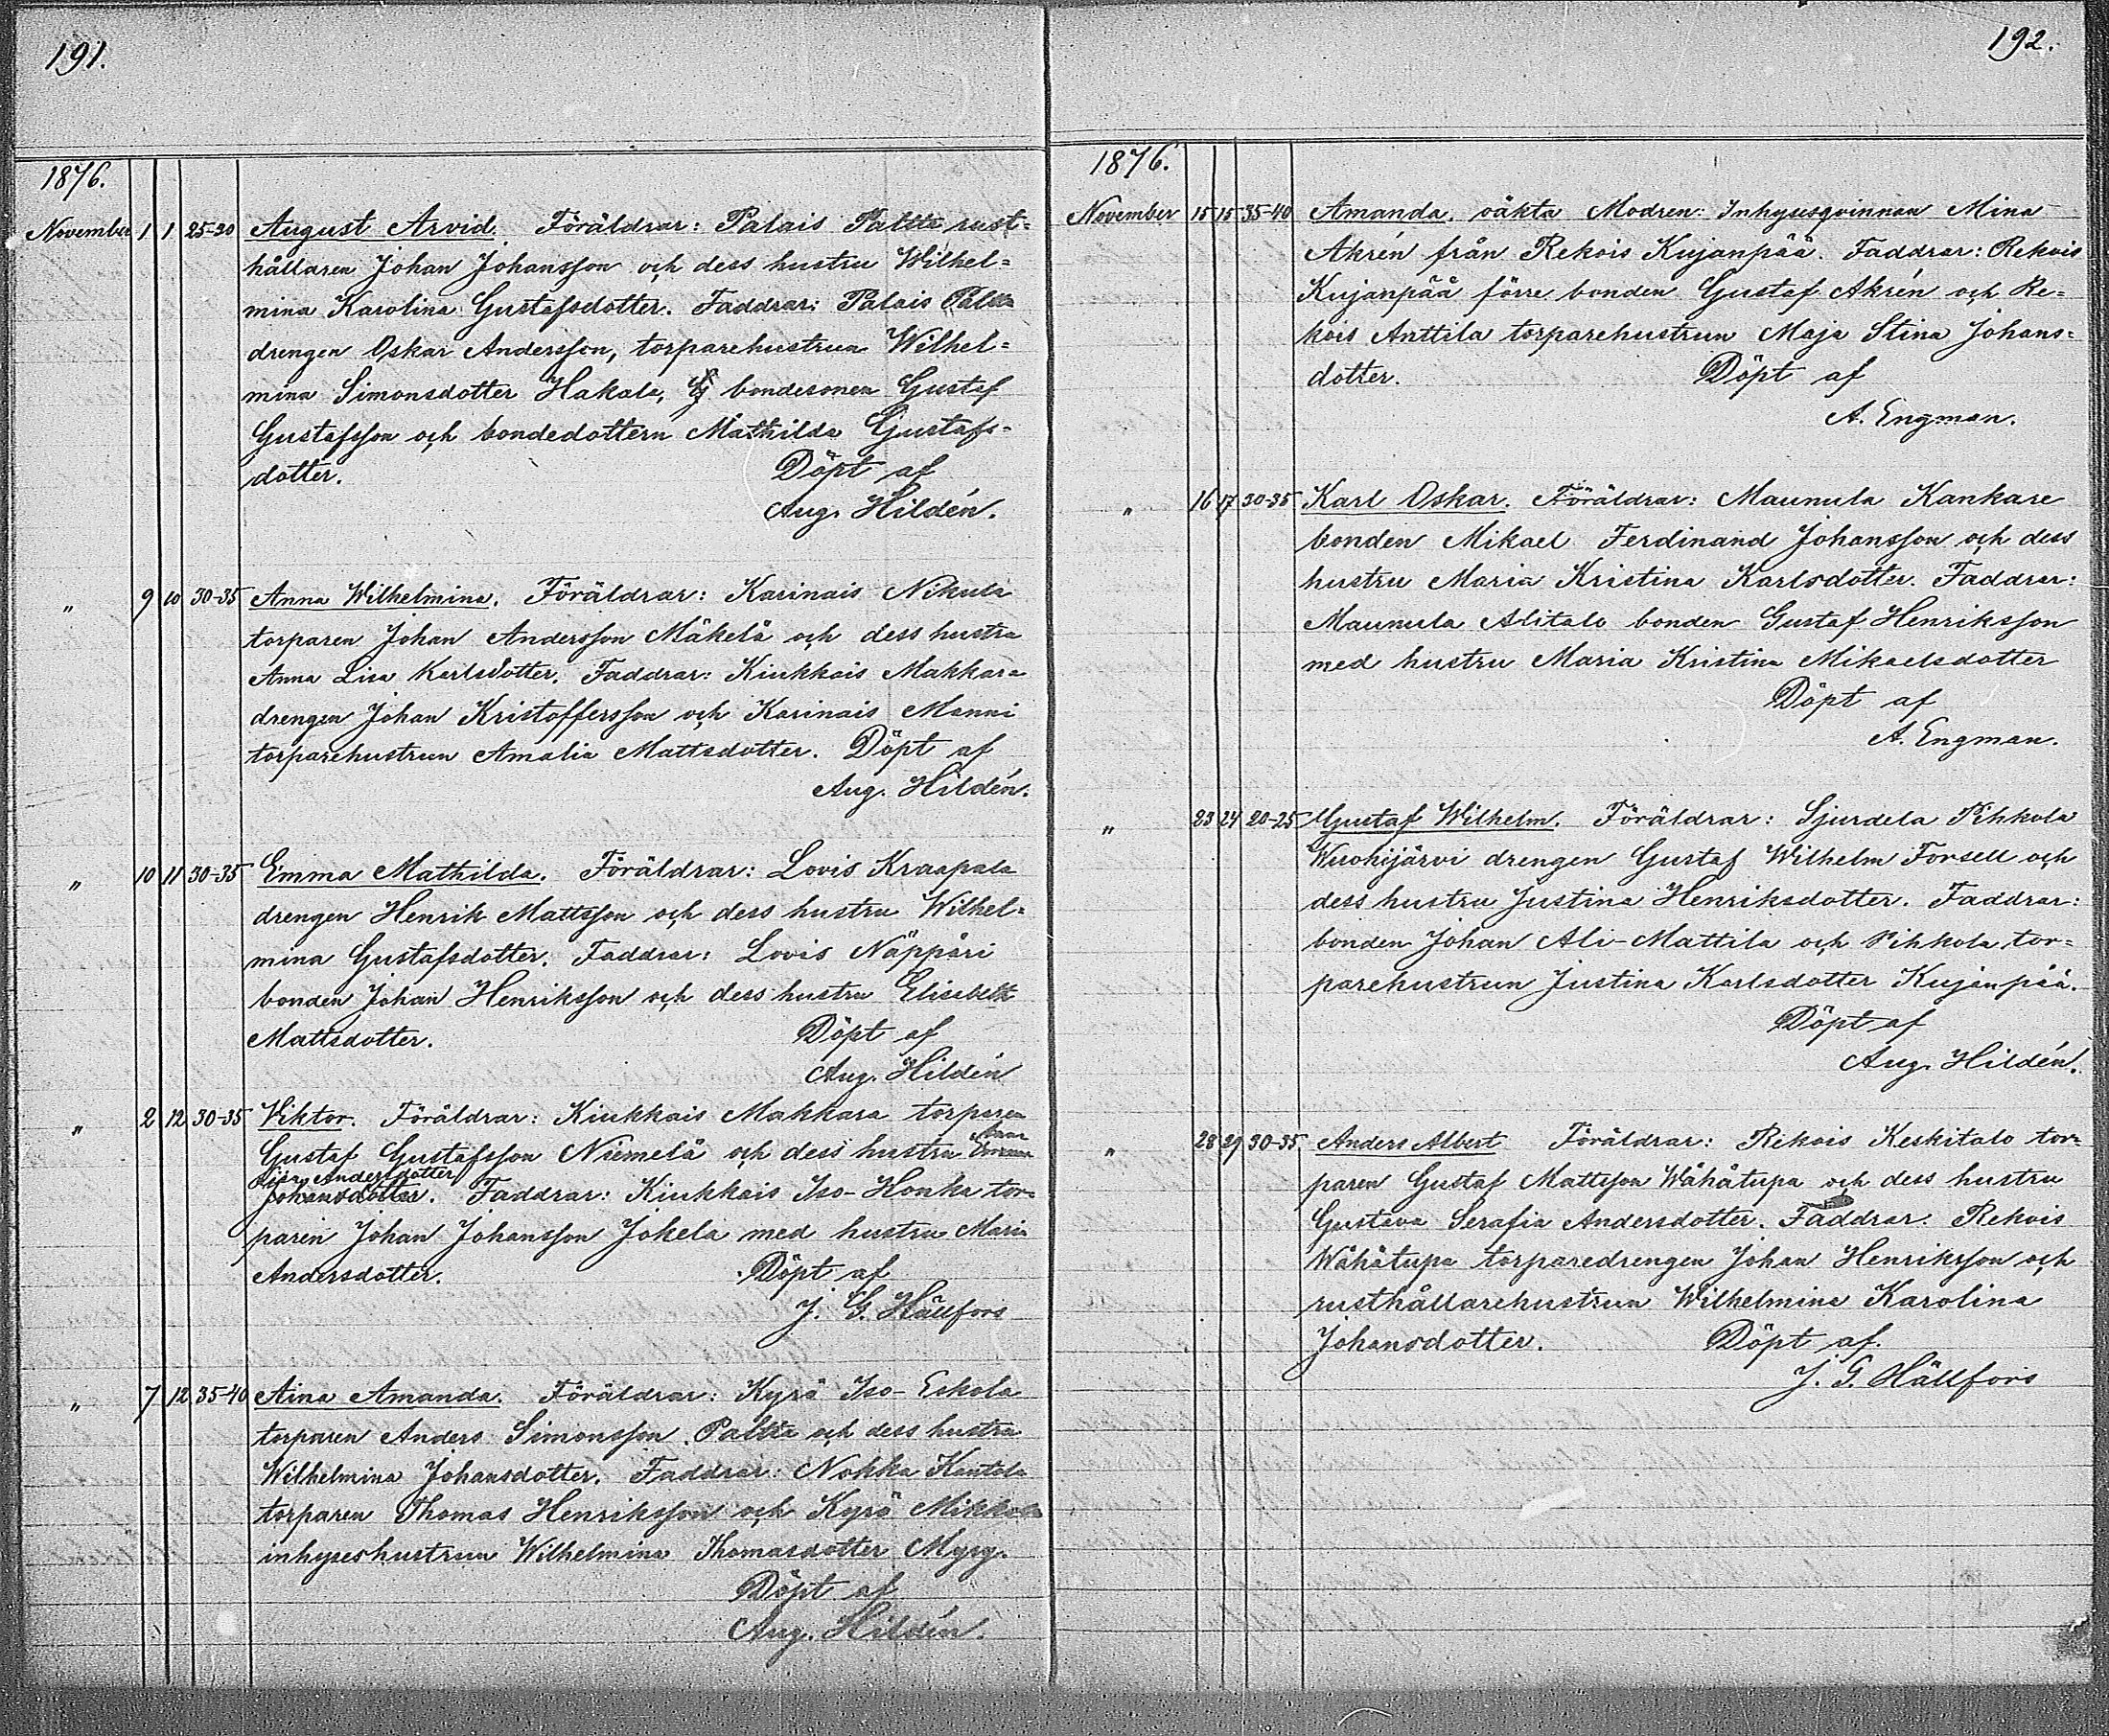 191.
1876.
November 1 1 25-30 August Arvid. Föräldrar: Palais Paltta rust=
hållaren Johan Johansson och dess hustru Wilhel=
mina Karolina Gustafsdotter. Faddrar: Palais Paltta
drengen Oskar Andersson, torparehustrun Wilhel=
mina Simonsdotter Hakala, bondesonen Gustaf
Gustafsson och bondedottern Mathilda Gustafs-
dotter. Döpt af
Aug. Hildén.
" 9 10 30-35 Anna Wilhelmina. Föräldrar: Karinais Nikula
torparen Johan Andersson Mäkelä och dess hustru
Anna Lisa Karlsdotter. Faddrar: Kiukkais Makkara
drengen Johan Kristoffersson och Karinais Manni
torparehustrun Amalia Mattsdotter. Döpt af
Aug. Hildén.
" 10 11 30-35 Emma Mathilda. Föräldrar: Lovis Kraapala
drengen Henrik Mattsson och dess hustru Wilhel=
mina Gustafsdotter. Faddrar: Lovis Näppäri
bonden Johan Henriksson och dess hustru Elisabeth
Mattsdotter. Döpt af
Aug. Hildén
" 2 12 30-35 Viktor. Föräldrar: Kiukkais Makkara torparen
Gustaf Gustafsson Niemelä och dess hustru
Andersdotter
Johansdotter. Faddrar: Kiukkais Iso-Honka tor=
paren Johan Johansson Jokela med hustru Maria
Andersdotter. Döpt af
J. G. Hällfors
" 7 12 35-40 Aina Amanda. Föräldrar: Kyrö Iso-Eskola
torparen Anders Simonsson Paltta och dess hustru
Wilhelmina Johansdotter. Faddrar: Nokka Kantola
torparen Thomas Henriksson och Kyrö Mikkola
inhyseshustrun Wilhelmina Thomasdotter Myry.
Döpt af
Aug. Hildén.
192.
1876.
November 15 15 35-40 Amanda, oäkta Modren: Inhysesqvinnan Mina
Akrén från Rekois Kujanpää. Faddrar: Rekois
Kujanpää förre bonden Gustaf Akrén och Re=
kois Anttila torparehustrun Maja Stina Johans=
dotter. Döpt af
A. Engman.
" 16 17 30-35 Karl Oskar. Föräldrar: Maunula Kankare
bonden Mikael Ferdinand Johansson och dess
hustru Maria Kristina Karlsdotter. Faddrar:
Maunula Alitalo bonden Gustaf Henriksson
med hustru Maria Kristina Mikaelsdotter
Döpt af
A. Engman.
" 23 24 20-25 Gustaf Wilhelm. Föräldrar: Sjurdela Pihkola
Wuohijärvi drengen Gustaf Wilhelm Forsell och
dess hustru Justina Henriksdotter. Faddrar:
bonden Johan Ali-Mattila och Pihkola tor=
parehustrun Justina Karlsdotter Kujanpää.
Döpt af
Aug. Hildén.
" 28 29 30-35 Anders Albert Föräldrar: Rekois Keskitalo tor=
paren Gustaf Mattsson Wähätupa och dess hustru
Gustava Serafia Andersdotter. Faddrar: Rekois
Wähätupa torparedrengen Johan Henriksson och
rusthållarehustrun Wilhelmina Karolina
Johansdotter. Döpt af.
J. G. Hällfors